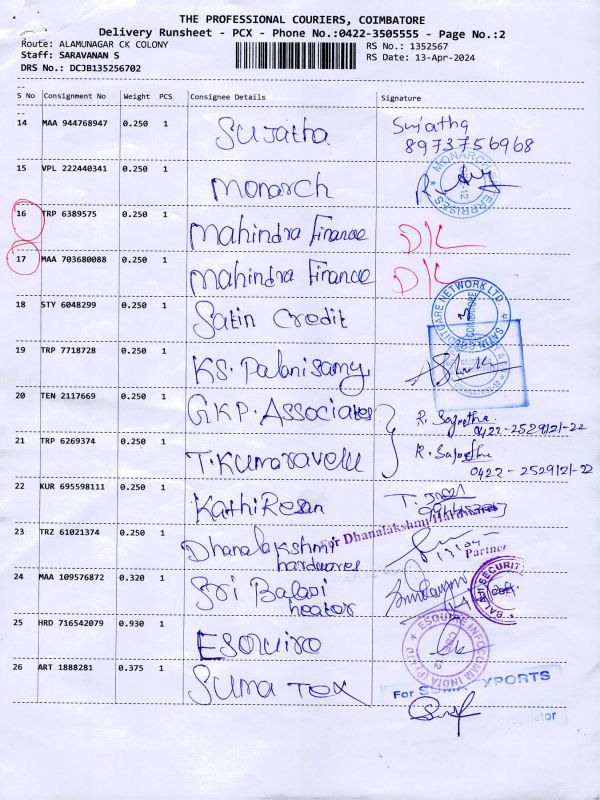 THE PROFESSIONAL COURIERS, COIMBATORE
Delivery Runsheet - PCX - Phone No.:0422-3505555 - Page No.:2
Route: ALAMUNAGAR CK COLONY
RS No.: 1352567
Staff: SARAVANAN S
RS Date: 13-Apr-2024
DRS No.: DCJB135256702
S No Consignment No Weight PCS Consignee Details Signature
14 MAA 944768947 0.250 1 Sujatha Sujatha
8973756968
15 VPL 222440341 0.250 1 Monarch
MONARCH ENTERPRISES
16 TRP 6389575 0.250 1 Mahindra Finance D/L
17 MAA 703680088 0.250 1 Mahindra Finance D/L
18 STY 6048299 0.250 1 Satin Credit
SATIN CREDITCARE NETWORK LTD. COIMBATORE
19 TRP 7718728 0.250 1 KS. Palanisamy
20 TEN 2117669 0.250 1 G.K.P. Associates R. Sajeetha
0422-2529121-22
21 TRP 6269374 0.250 1 T. Kumaravelu R. Sajeetha
0422-2529121-22
22 KUR 695598111 0.250 1 Kathiresan
23 TRZ 61021374 0.250 1 Dhanalakshmi
hardwares
For Dhanalakshmi Hardwares
Partner
24 MAA 109576872 0.320 1 Sri Balaji
heator
SECURITY
25 HRD 716542079 0.930 1 Esquiro
ESQUIRE INFOCOMM INDIA (P) LTD
26 ART 1888281 0.375 1 Suma Tex
For SUMA EXPORTS